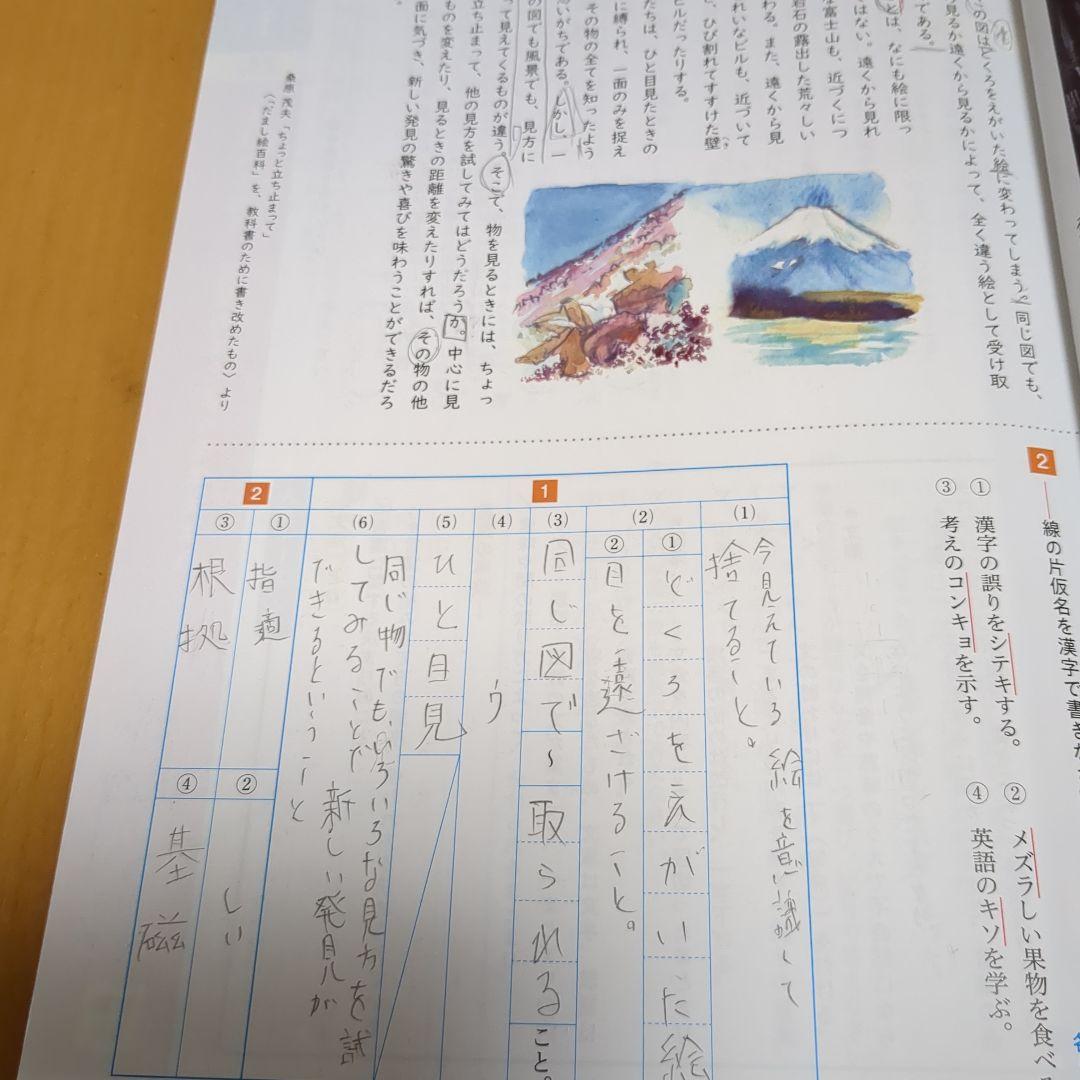 の図はどくろをえがいた絵に変わってしまう。同じ図でも、
見るか遠くから見るかによって、全く違う絵として受け取
である。
とは、なにも絵に限っ
ではない。遠くから見れ
な富士山も、近づくにつ
岩石の露出した荒々しい
わる。また、遠くから見
れいなビルも、近づいて
と、ひび割れてすすけた壁
ビルだったりする。
たちは、ひと目見たときの
に縛られ、一面のみを捉え
その物の全てを知ったよう
思いがちである。しかし、一
の図でも風景でも、見方に
って見えてくるものが違う。そこで、物を見るときには、ちょっ
立ち止まって、他の見方を試してみてはどうだろうか。中心に見
ものを変えたり、見るときの距離を変えたりすれば、その物の他
面に気づき、新しい発見の驚きや喜びを味わうことができるだろ
桑原 茂夫「ちょっと立ち止まって」
〈「だまし絵百科」を、教科書のために書き改めたもの〉より
2
線の片仮名を漢字で書きな
① 漢字の誤りをシテキする。
② メズラしい果物を食べ
③ 考えのコンキョを示す。
④ 英語のキソを学ぶ。
1
(1)
今見えている絵を意識して
捨てること。
(2)
① どくろをえがいた絵
② 目を遠ざけること。
(3)
同じ図で~取られること。
(4)
ウ
(5)
ひと目見
(6)
同じ物でも、いろいろな見方を試
してみることで新しい発見が
できるということ
2
① 指適
② しい
③ 根拠
④ 基磁